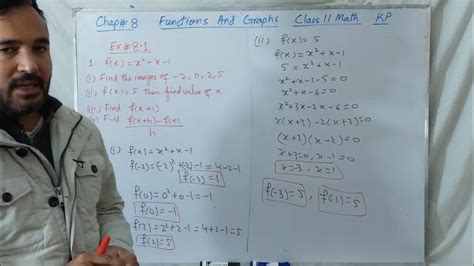 Chap# 8 Functions And Graphs Class 11 Math KP
Ex# 8.1
1. f(x) = x² + x - 1
(i) Find the images of -2, 0, 2, 5
(ii) f(x) = 5 Then find value of x
(iii) Find f(x+1)
(iv) Find f(x+h) - f(x) / h
(i) f(x) = x² + x - 1
f(-2) = (-2)² + (-2) - 1 = 4 - 2 - 1
f(-2) = 1
f(0) = 0² + 0 - 1 = -1
f(0) = -1
f(2) = 2² + 2 - 1 = 4 + 2 - 1 = 5
f(2) = 5
(ii) f(x) = 5
f(x) = x² + x - 1
5 = x² + x - 1
x² + x - 1 - 5 = 0
x² + x - 6 = 0
x² + 3x - 2x - 6 = 0
x(x+3) - 2(x+3) = 0
(x+3)(x-2) = 0
x+3=0, x-1=0
x=-3 - x=1
f(-3) = 5 , f(1) = 5